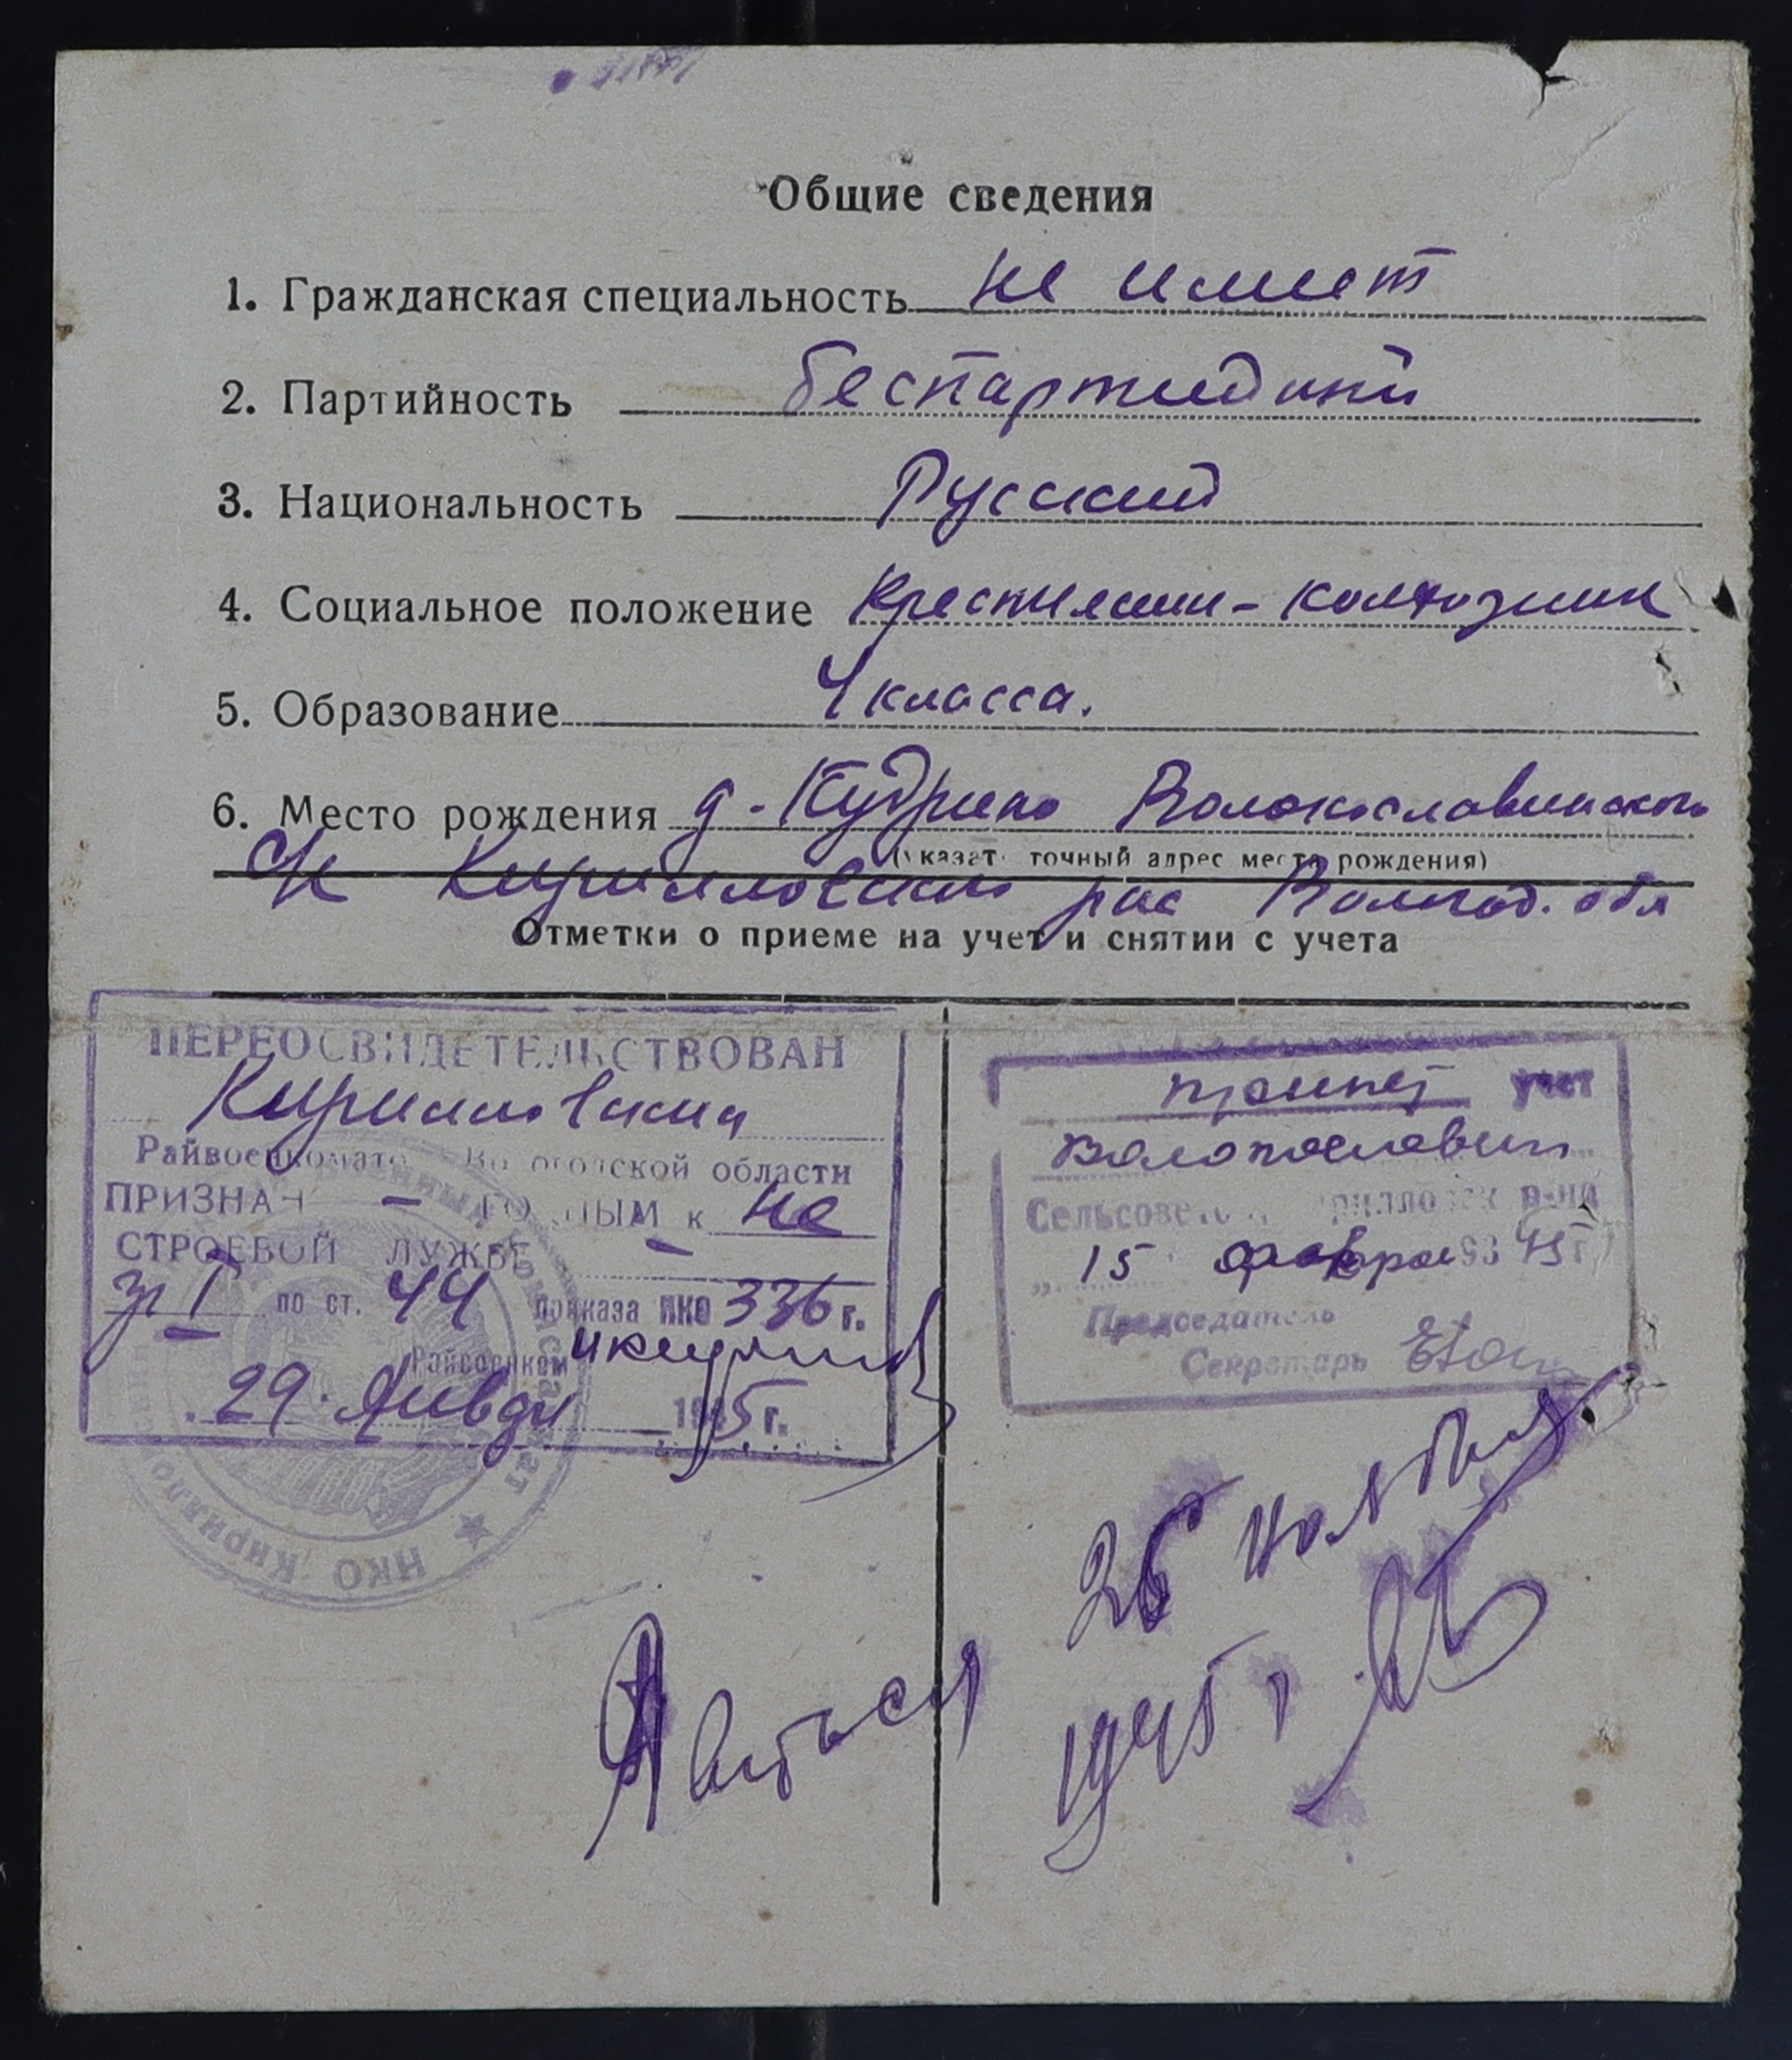 Общие сведения
1. Гражданская специальность не имеет
2. Партийность беспартийный
3. Национальность Русский
4. Социальное положение крестьянин-колхозник
5. Образование 4 класса.
6. Место рождения д. Кудрино Волокославинского
(указать точный адрес места рождения)
с/с Кирилловского р-на Вологод. обл
Отметки о приеме на учет и снятии с учета
ПЕРЕОСВИДЕТЕЛЬСТВОВАН
Кирилловским
Райвоенкомато Вологодской области
ПРИЗНАН - ГОДНЫМ к не
СТРОЕВОЙ ЛУЖБЕ
гр I по ст. 44 приказа НКО 336 г.
Райвоенком
29 Января 1945 г.
НКО Кирилло
принят учет
Волокославин
Сельсовето Кирилловск р-на
15 февраля 1945 г.
Председатель
Секретарь
Явиться
26 ноября
1945 г